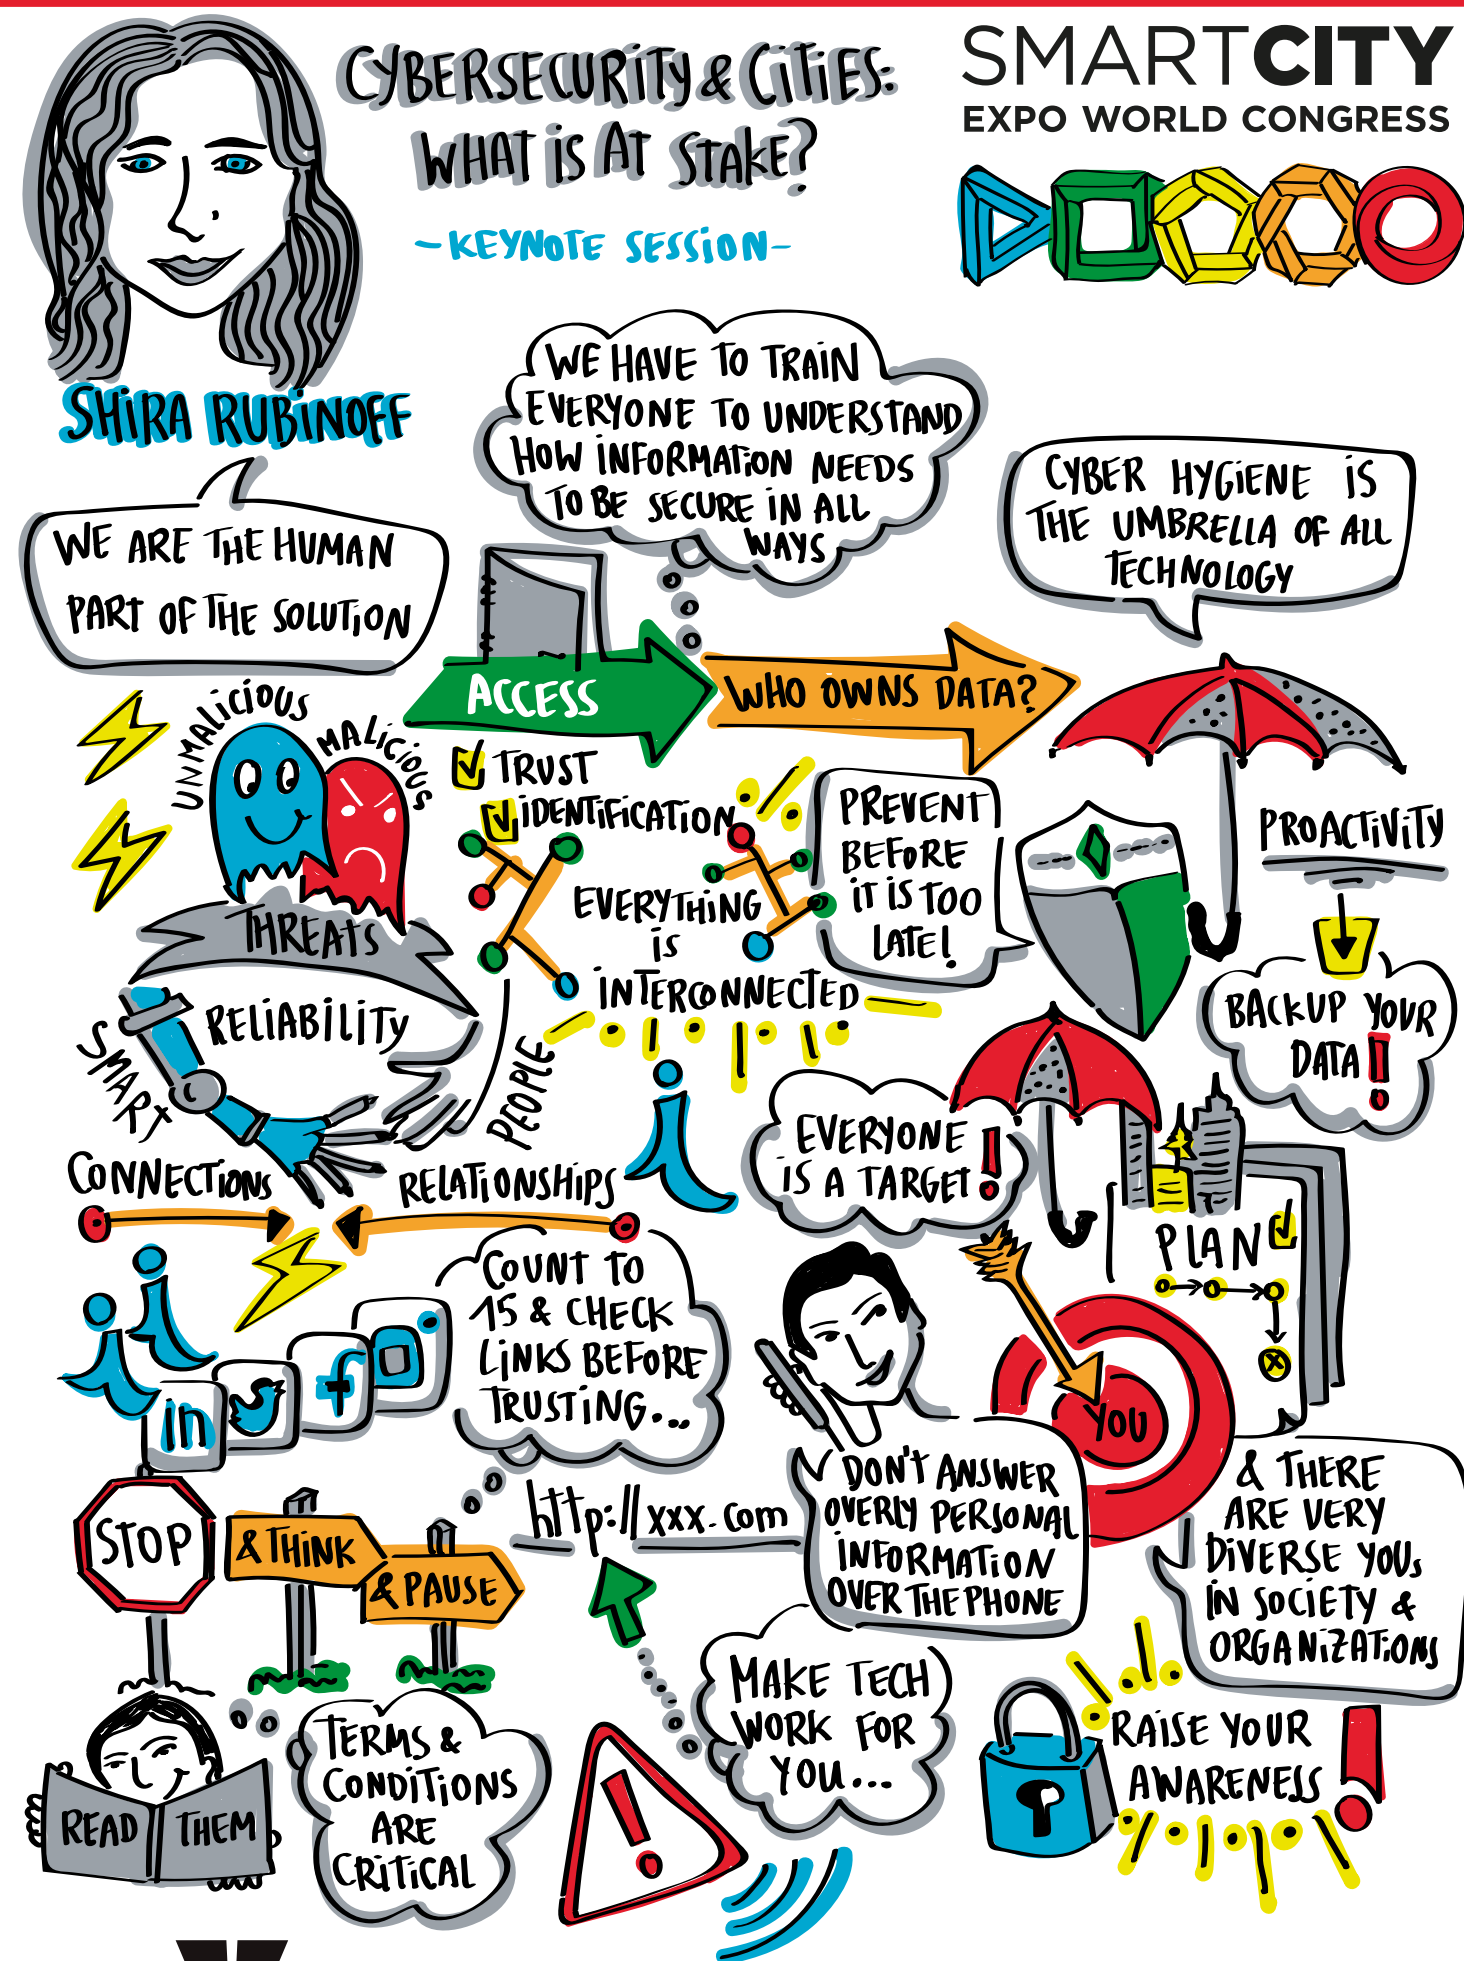 CYBERSECURITY & CITIES:
WHAT IS AT STAKE?
- KEYNOTE SESSION -
SMARTCITY
EXPO WORLD CONGRESS
SHIRA RUBINOFF
WE ARE THE HUMAN
PART OF THE SOLUTION
WE HAVE TO TRAIN
EVERYONE TO UNDERSTAND
HOW INFORMATION NEEDS
TO BE SECURE IN ALL
WAYS
CYBER HYGIENE IS
THE UMBRELLA OF ALL
TECHNOLOGY
ACCESS
WHO OWNS DATA?
UNMALICIOUS
MALICIOUS
THREATS
TRUST
IDENTIFICATION
EVERYTHING
IS
INTERCONNECTED
PREVENT
BEFORE
IT IS TOO
LATE!
PROACTIVITY
BACKUP YOUR
DATA!
SMART
RELIABILITY
PEOPLE
CONNECTIONS
RELATIONSHIPS
EVERYONE
IS A TARGET!
PLAN
COUNT TO
15 & CHECK
LINKS BEFORE
TRUSTING...
in
f
YOU
STOP
& THINK
& PAUSE
http://xxx.com
DON'T ANSWER
OVERLY PERSONAL
INFORMATION
OVER THE PHONE
& THERE
ARE VERY
DIVERSE YOUs
IN SOCIETY &
ORGANIZATIONS
READ THEM
TERMS &
CONDITIONS
ARE
CRITICAL
MAKE TECH
WORK FOR
YOU...
RAISE YOUR
AWARENESS!